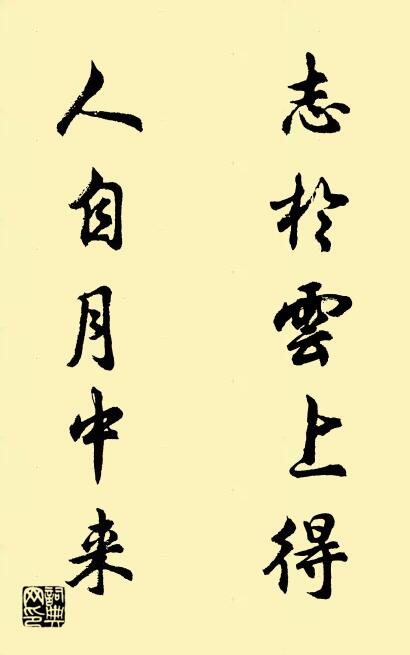 志於雲上得
人自月中来